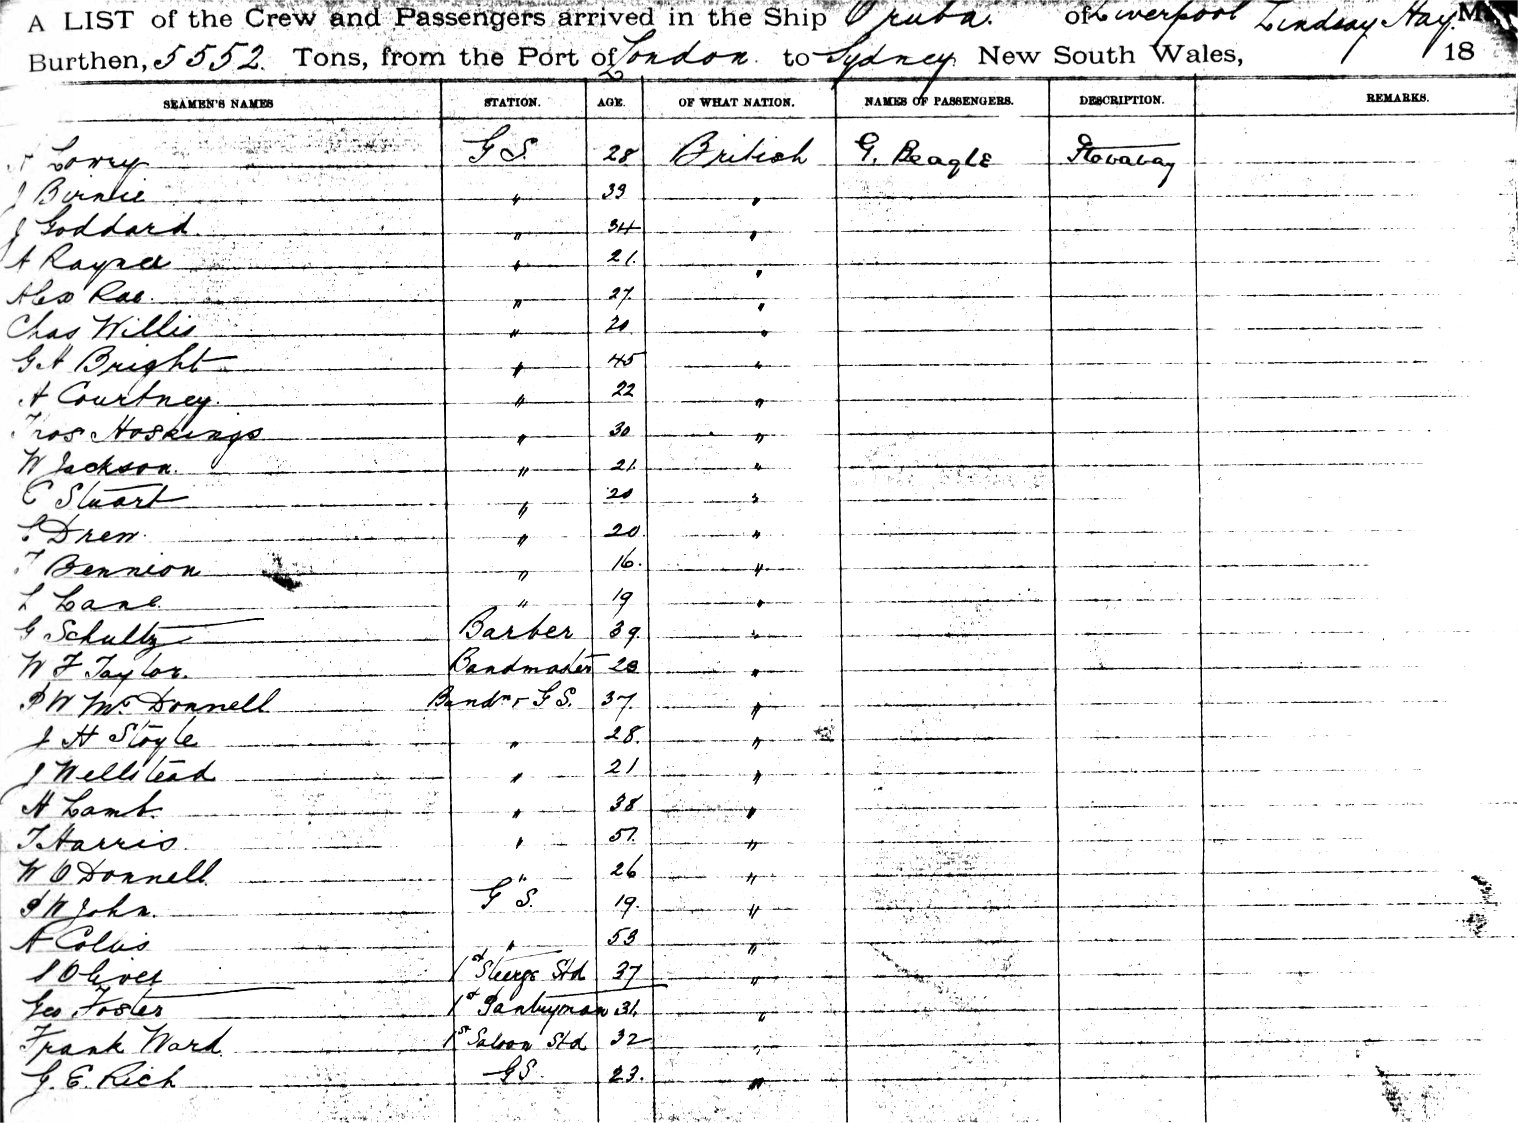 A LIST of the Crew and Passengers arrived in the Ship Oruba. of Liverpool Lindsay Hay. M
Burthen, 5552. Tons, from the Port of London to Sydney New South Wales, 18
SEAMEN'S NAMES STATION. AGE. OF WHAT NATION. NAMES OF PASSENGERS. DESCRIPTION. REMARKS.
Lowry G S. 28 British G. Beagle Stowaway
J Birnie " 33 "
J Goddard " 34 "
A Rayner " 21 "
Alex Rae " 27 "
Chas Willis " 20 "
G A Bright " 45 "
A Courtney " 22 "
Thos Hoskings " 30 "
W Jackson. " 21 "
C Stuart " 20 "
Drew " 20 "
T Bennion " 16 "
L Lane " 19 "
G Schultz Barber 39 "
W F Taylor. Bandmaster "
P W McDonnell Bandmr G S. 37 "
J H Stoyle " 28 "
J Wellstead " 21 "
A Lamb. " 38 "
T Harris " 51 "
W O Donnell " 26 "
P W John. G S. 19 "
A Colvis " 53 "
S Oliver 1st Steerge Std 37 "
Geo Foster 1st Pantryman 31 "
Frank Ward 1st Saloon Std 32 "
G. E. Rich GS. 23. "